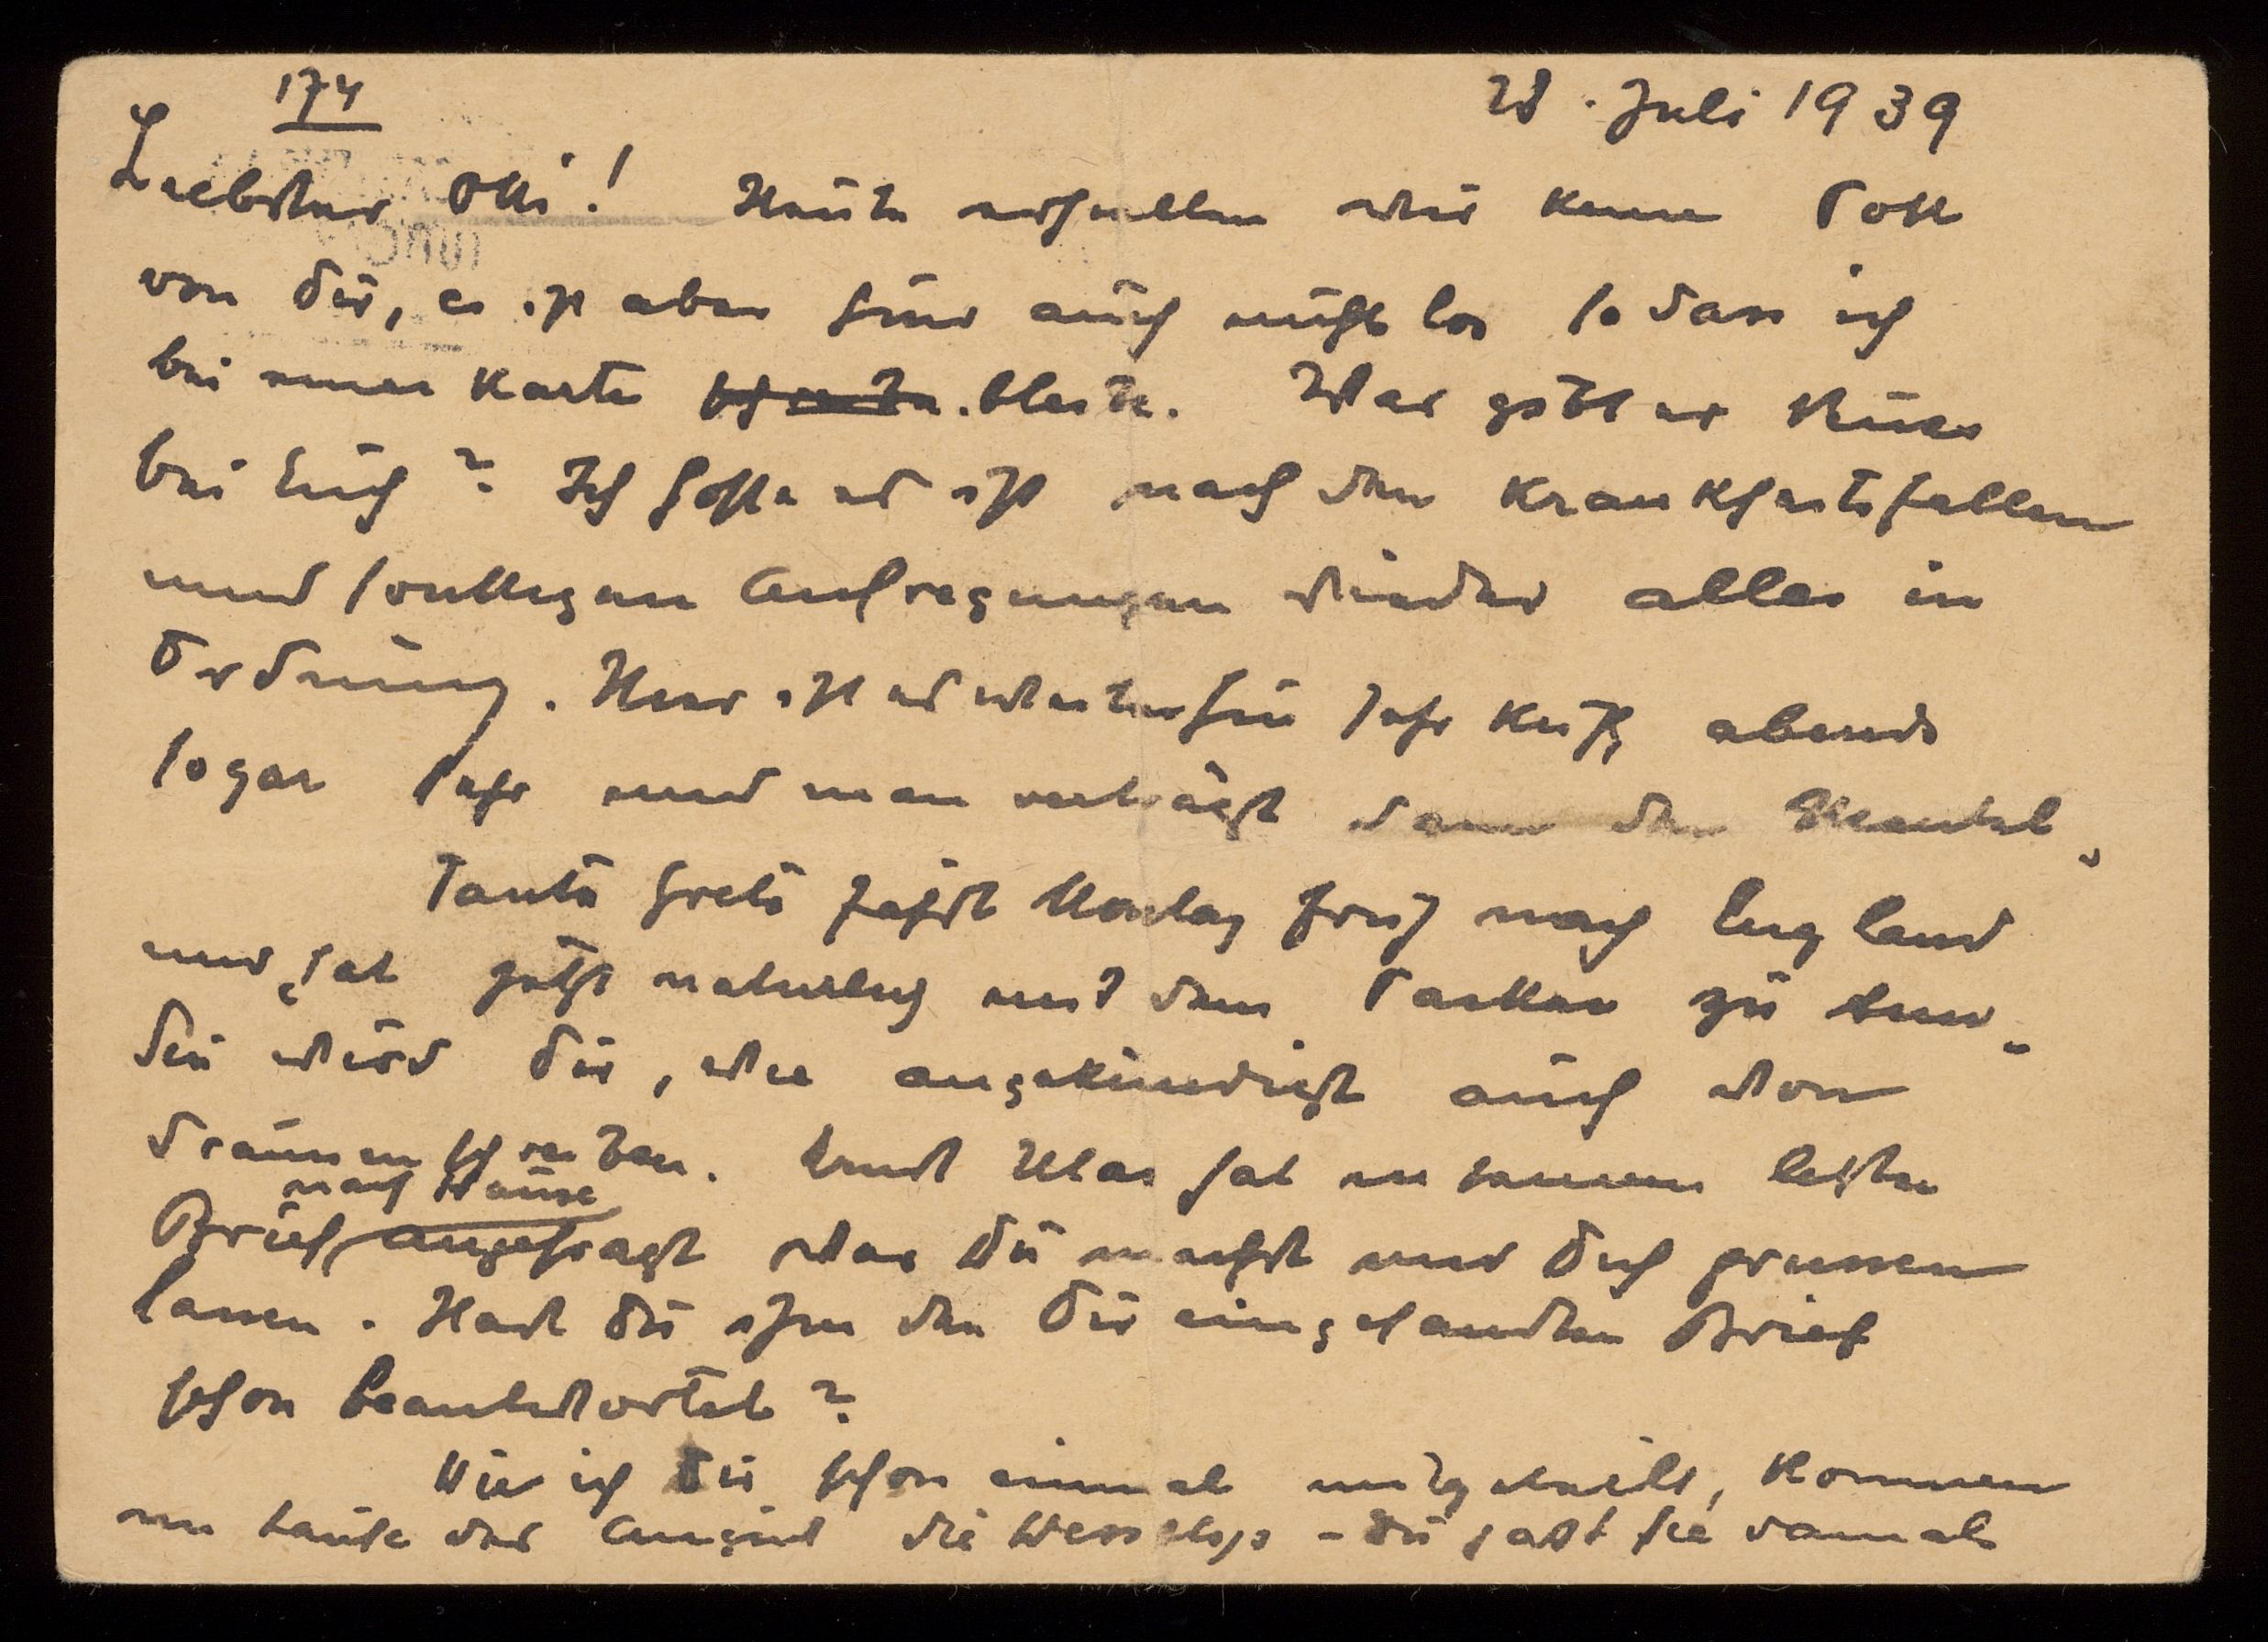 174
28. Juli 1939
Liebster Otti! Heute erhielten wir keine Post
von Dir, es ist aber hier auch nichts los so dass ich
bei einer Karte schreibe bleibe. Was gibt es Neues
bei Euch? Ich hoffe es ist nach den Krankheitsfällen
und sonstigen Aufregungen wieder alles in
Ordnung. Hier ist es weiterhin sehr kühl, abends
sogar sehr und man verträgt dann den Mantel.
Tante Grete fährt Montag früh nach England
und hat jetzt natürlich mit dem Packen zu tun.
Sie wird Dir, wie angekündigt auch von
draussen schreiben. Ernst hat in seinem letzten
nach Hause
Brief angefragt was Du machst und Dich grüssen
lassen. Hast Du ihm den Dir eingesandten Brief
schon beantwortet?
Wie ich Dir schon einmal mitgeteilt, kommen
im Laufe des August die - Du hast sie damals